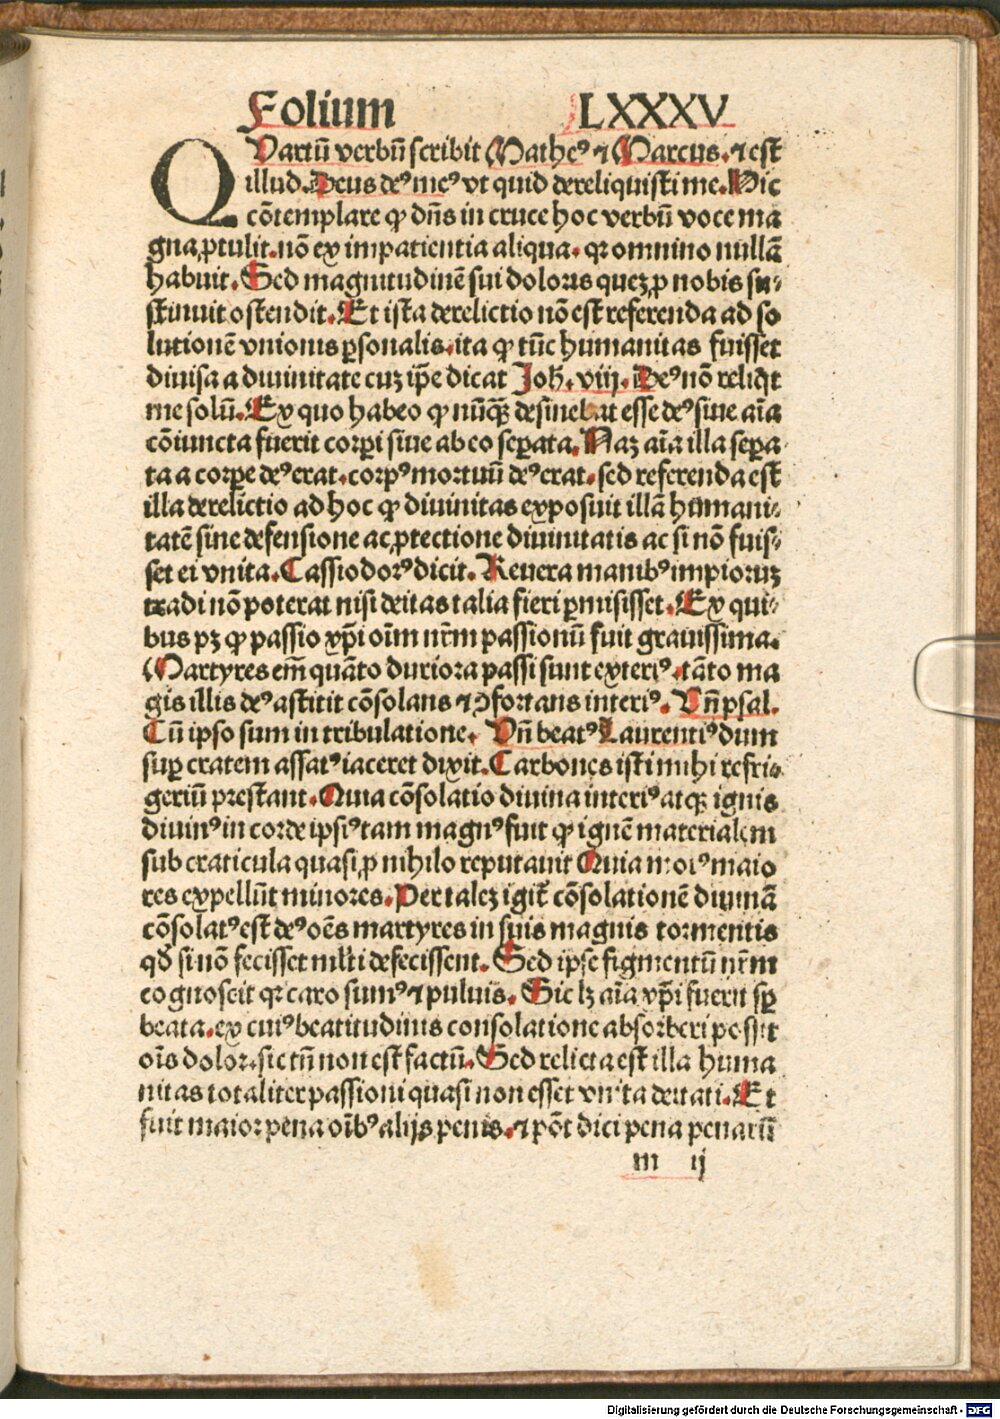 Folium LXXXV
QVartū verbū scribit Matheꝰ ⁊ Marcus. ⁊ est
illud. Deus deꝰ meꝰ vt quid dereliquisti me. Hic
cōtemplare ꝙ dn̄s in cruce hoc verbū voce ma
gna ꝓtulit. nō ex impatientia aliqua. qꝛ omnino nullā
habuit. Sed magnitudinē sui doloris queꝫ ꝓ nobis su⸗
stinuit ostendit. Et ista derelictio nō est referenda ad so
lutionē vnionis ꝑsonalis. ita ꝙ tūc humanitas fuisset
diuisa a diuinitate cuꝫ ip̄e dicat Joh̄. viij. Deꝰ nō reliqt
me solū. Ex quo habeo ꝙ nūꝙ̄ desinebat esse deꝰ siue aīa
cōiuncta fuerit corꝑi siue ab eo seꝑata. Naꝫ aīa illa seꝑa
ta a corꝑe deꝰ erat. corpꝰ mortuū deꝰ erat. sed referenda est
illa derelictio ad hoc ꝙ diuinitas exposuit illā humani⸗
tatē sine defensione ac ꝓtectione diuinitatis ac si nō fuis⸗
set ei vnita. Cassiodorꝰ dicit. Reuera manibꝰ impioruꝫ
tradi nō poterat nisi deitas talia fieri ꝑmisisset. Ex qui⸗
bus pꝫ ꝙ passio xp̄i oīm nr̄m passionū fuit grauissima.
Martyres em̄ quāto duriora passi sunt exteriꝰ. tāto ma
gis illis deꝰ astitit cōsolans ⁊ ꝯfortans interiꝰ. Vn̄ psal.
Cū ipso sum in tribulatione. Vn̄ beatꝰ Laurentiꝰ dum
suꝑ cratem assatꝰ iaceret dixit. Carbones isti mihi refri⸗
geriū prestant. Quia cōsolatio diuina interiꝰ atqꝫ ignis
diuinꝰ in corde ipsiꝰ tam magnꝰ fuit ꝙ ignē materialem
sub craticula quasi ꝓ nihilo reputauit Quia motꝰ maio
res expellūt minores. Per taleꝫ igit̄ cōsolationē diuinā
cōsolatꝰ est deꝰ oēs martyres in suis magnis tormentis
qd̄ si nō fecisset ml̄ti defecissent. Sed ipse figmentū nr̄m
cognoscit qꝛ caro sumꝰ ⁊ puluis. Sic lꝫ aīa xp̄i fuerit sꝑ
beata. ex cuiꝰ beatitudinis consolatione absorberi posset
oīs dolor. sic tn̄ non est factū. Sed relicta est illa huma
nitas totaliter passioni quasi non esset vnita deitati. Et
fuit maior pena oībꝰ alijs penis. ⁊ pōt dici pena penarū
m ij
Digitalisierung gefördert durch die Deutsche Forschungsgemeinschaft - DFG